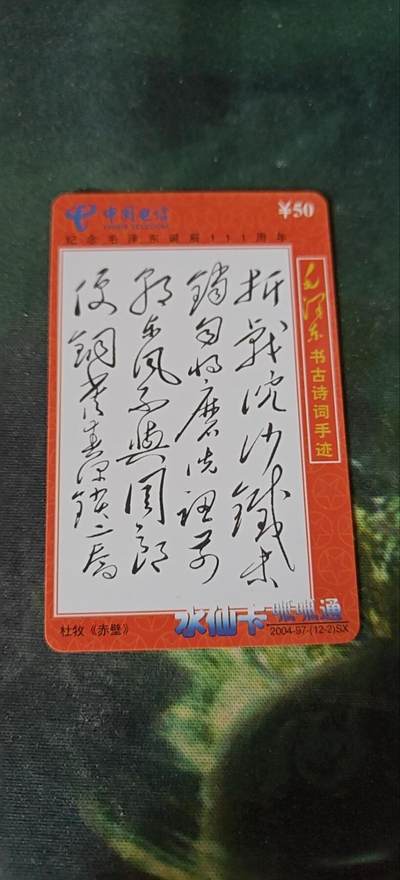 中国电信
CHINA TELECOM
¥50
纪念毛泽东诞辰111周年
毛泽东书古诗词手迹
折戟沈沙鐵未
銷自将磨洗認前
朝东风不與周郎
便銅雀春深鎖二喬
水仙卡
通
杜牧《赤壁》
2004-97-(12-2)SX